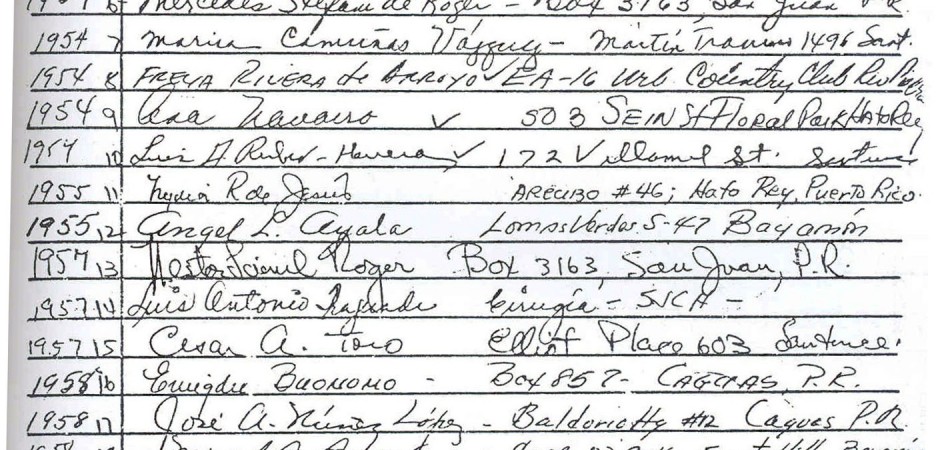 6 Mercedes de Roger - Box 3163, San Juan P.R.
1954 7 Marina Camuñas Vázquez - Martín Travieso 1496 Sant.
1954 8 FREYA RIVERA de ARROYO ✓ EA-16 Urb. Country Club Rio Piedras
1954 9 Ana Navarro ✓ 503 SEIN St Floral Park Hato Rey
1954 10 Luis A Rubio-Herrera ✓ 172 Villamil St. Santurce
1955 11 R de Jesús ARECIBO #46; Hato Rey, Puerto Rico.
1955 12 Angel L. Ayala Lomas Verdes S-47 Bayamón
1957 13 Nestor Roger Box 3163, San Juan, P.R.
1957 14 Luis Antonio Cirugía - -
1957 15 Cesar A. Toro Elliot Place 603 Santurce.
1958 16 Emigdio BUONOMO - Box 857 - CAGUAS, P.R.
1958 17 José A. Núñez López - Baldorioty #12 Caguas P.R